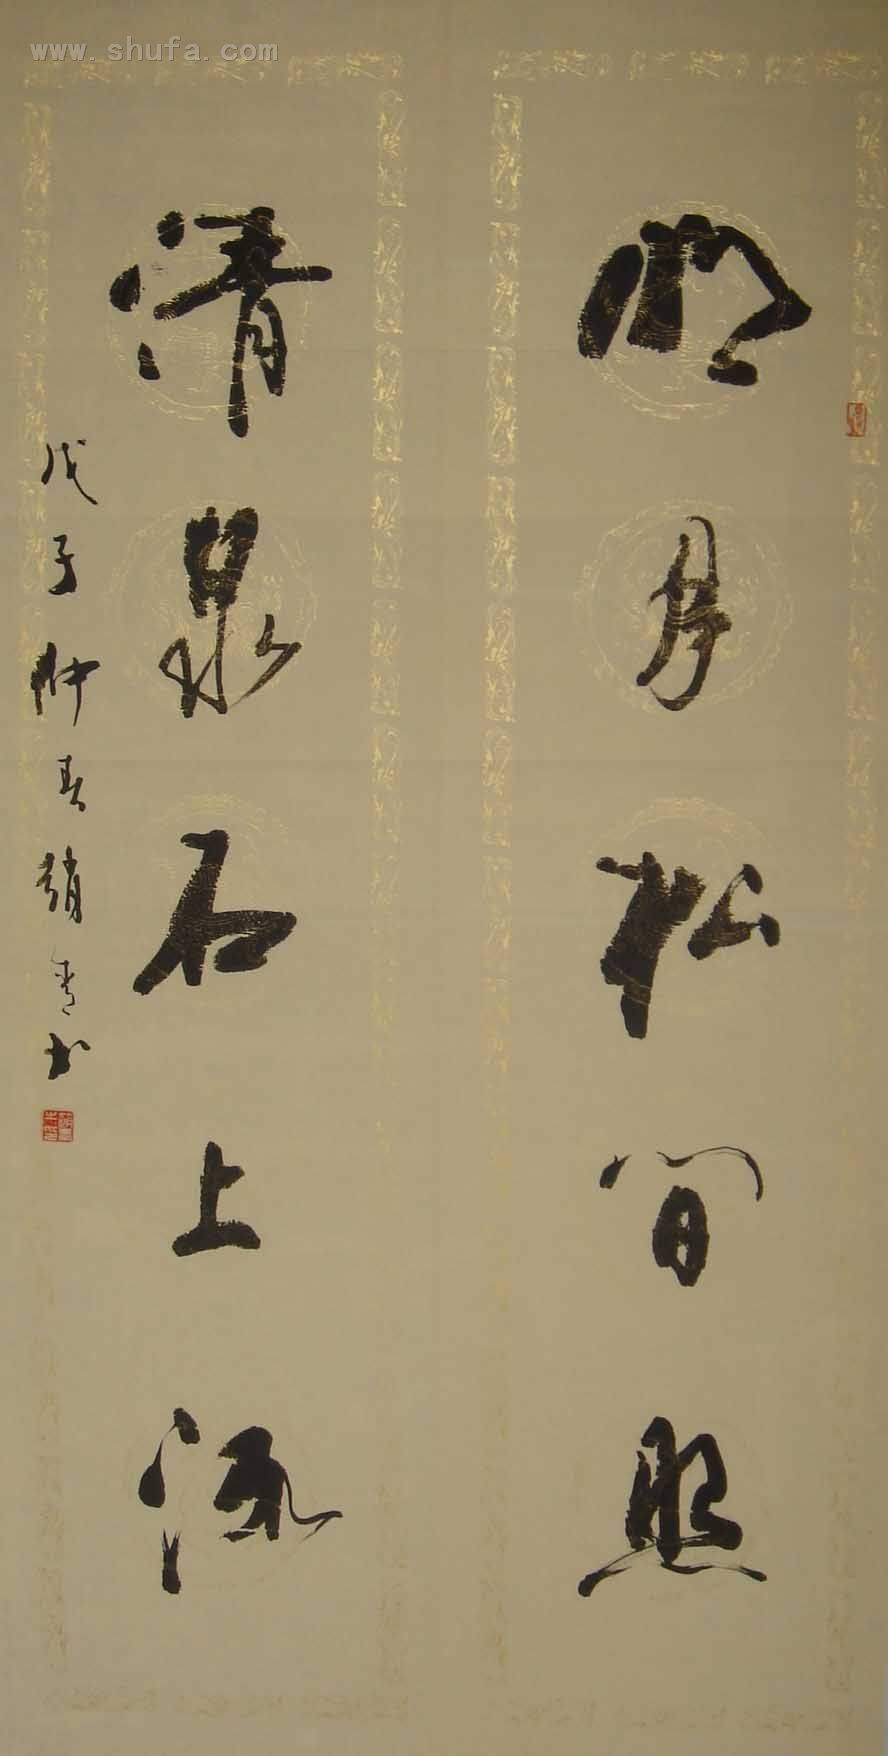 www.shufa.com
明月松间照
清泉石上流
戊子仲春赵青书